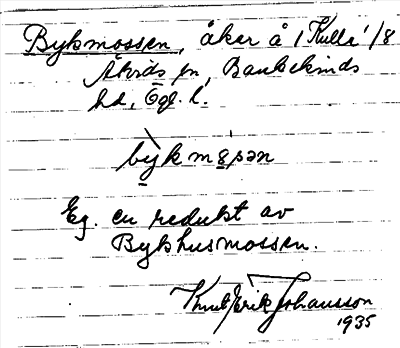 Bykmossen, åker å 1 Kulla 1/8
Åtvids sn, Bankekinds
hd, Ögl. l.
bỳkmåsən
Eg. en redukt av
Bykhusmossen.
Knut Erik Johansson
1935